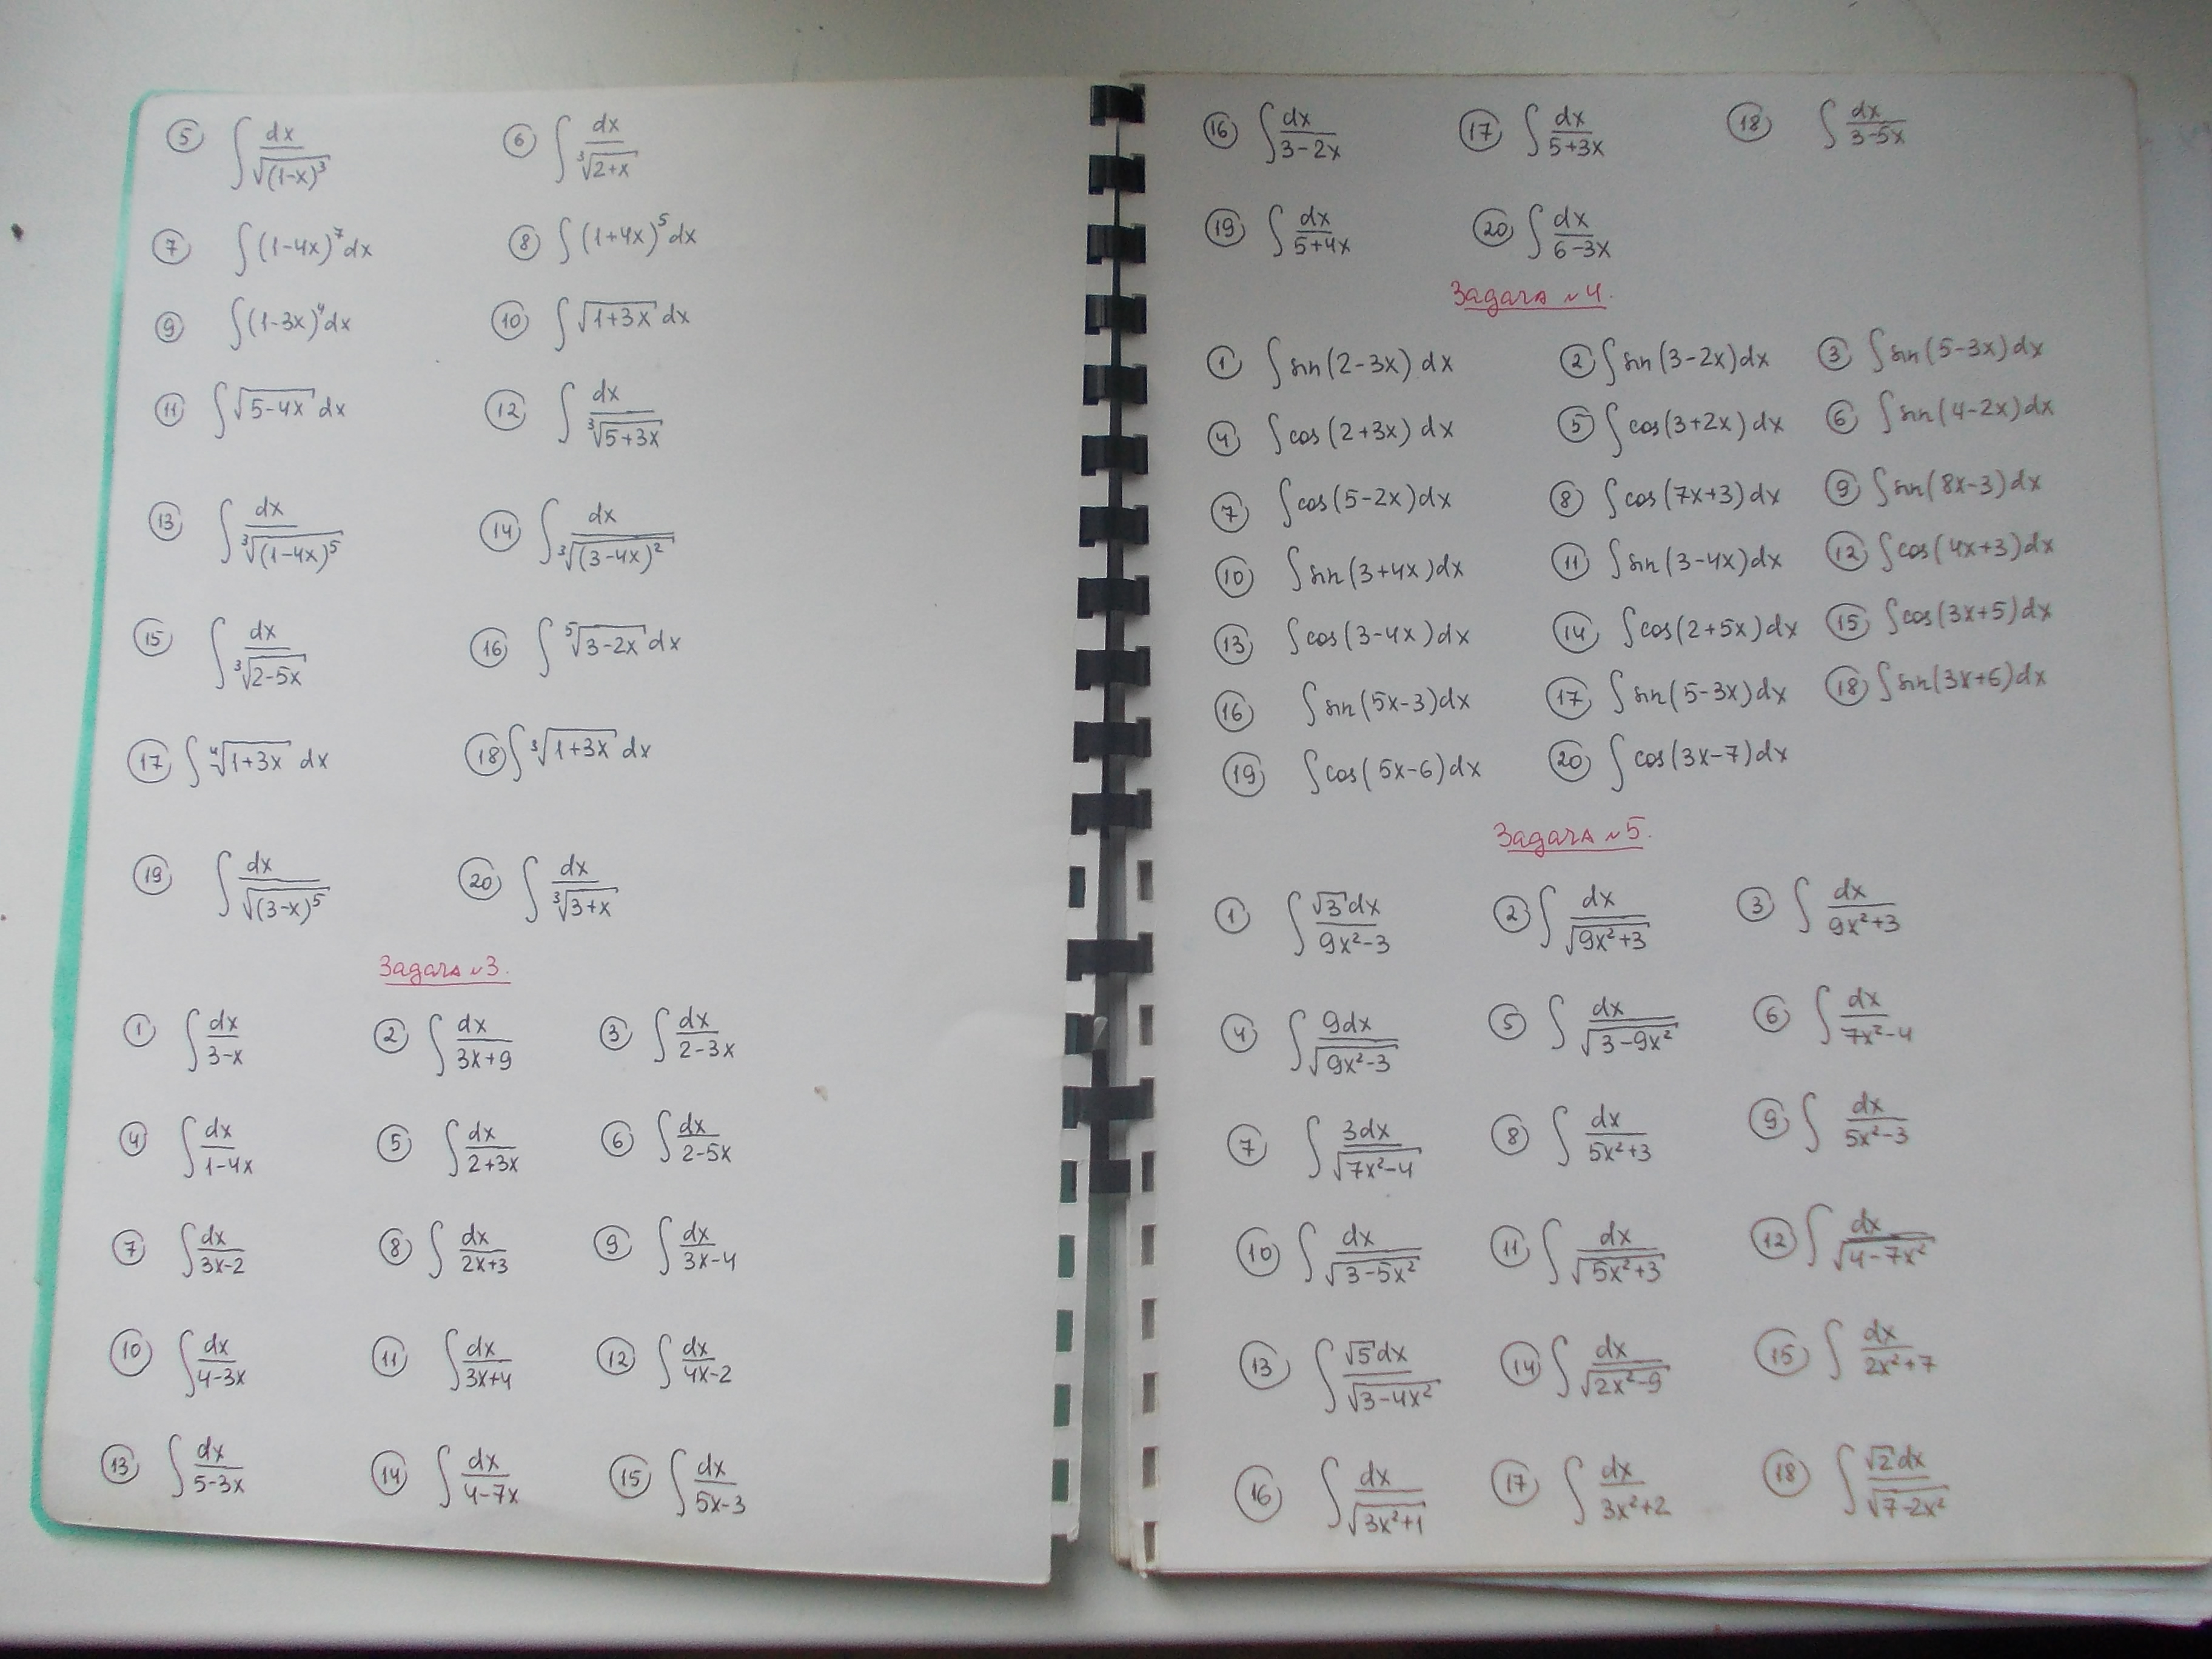 ⑤ ∫ dx/√(1-x)³ ⑥ ∫ dx/∛(2+x)
⑦ ∫(1-4x)⁷dx ⑧ ∫(1+4x)⁵dx
⑨ ∫(1-3x)⁴dx ⑩ ∫√(1+3x) dx
⑪ ∫√(5-4x) dx ⑫ ∫ dx/∛(5+3x)
⑬ ∫ dx/∛(1-4x)⁵ ⑭ ∫ dx/∛(3-4x)²
⑮ ∫ dx/∛(2-5x) ⑯ ∫ ⁵√(3-2x) dx
⑰ ∫ ∜(1+3x) dx ⑱ ∫ ∛(1+3x) dx
⑲ ∫ dx/√(3-x)⁵ ⑳ ∫ dx/∛(3+x)
Задача №3.
① ∫ dx/(3-x) ② ∫ dx/(3x+9) ③ ∫ dx/(2-3x)
④ ∫ dx/(1-4x) ⑤ ∫ dx/(2+3x) ⑥ ∫ dx/(2-5x)
⑦ ∫ dx/(3x-2) ⑧ ∫ dx/(2x+3) ⑨ ∫ dx/(3x-4)
⑩ ∫ dx/(4-3x) ⑪ ∫ dx/(3x+4) ⑫ ∫ dx/(4x-2)
⑬ ∫ dx/(5-3x) ⑭ ∫ dx/(4-7x) ⑮ ∫ dx/(5x-3)
⑯ ∫ dx/(3-2x) ⑰ ∫ dx/(5+3x) ⑱ ∫ dx/(3-5x)
⑲ ∫ dx/(5+4x) ⑳ ∫ dx/(6-3x)
Задача №4.
① ∫sin(2-3x) dx ② ∫sin(3-2x)dx ③ ∫sin(5-3x)dx
④ ∫cos(2+3x) dx ⑤ ∫cos(3+2x) dx ⑥ ∫sin(4-2x)dx
⑦ ∫cos(5-2x)dx ⑧ ∫cos(7x+3)dx ⑨ ∫sin(8x-3)dx
⑩ ∫sin(3+4x)dx ⑪ ∫sin(3-4x)dx ⑫ ∫cos(4x+3)dx
⑬ ∫cos(3-4x)dx ⑭ ∫cos(2+5x)dx ⑮ ∫cos(3x+5)dx
⑯ ∫sin(5x-3)dx ⑰ ∫sin(5-3x)dx ⑱ ∫sin(3x+6)dx
⑲ ∫cos(5x-6)dx ⑳ ∫cos(3x-7)dx
Задача №5.
① ∫ √3 dx/(9x²-3) ② ∫ dx/√(9x²+3) ③ ∫ dx/(9x²+3)
④ ∫ 9dx/√(9x²-3) ⑤ ∫ dx/√(3-9x²) ⑥ ∫ dx/(7x²-4)
⑦ ∫ 3dx/√(7x²-4) ⑧ ∫ dx/(5x²+3) ⑨ ∫ dx/(5x²-3)
⑩ ∫ dx/√(3-5x²) ⑪ ∫ dx/√(5x²+3) ⑫ ∫ dx/√(4-7x²)
⑬ ∫ √5 dx/√(3-4x²) ⑭ ∫ dx/√(2x²-9) ⑮ ∫ dx/(2x²+7)
⑯ ∫ dx/√(3x²+1) ⑰ ∫ dx/(3x²+2) ⑱ ∫ √2 dx/√(7-2x²)